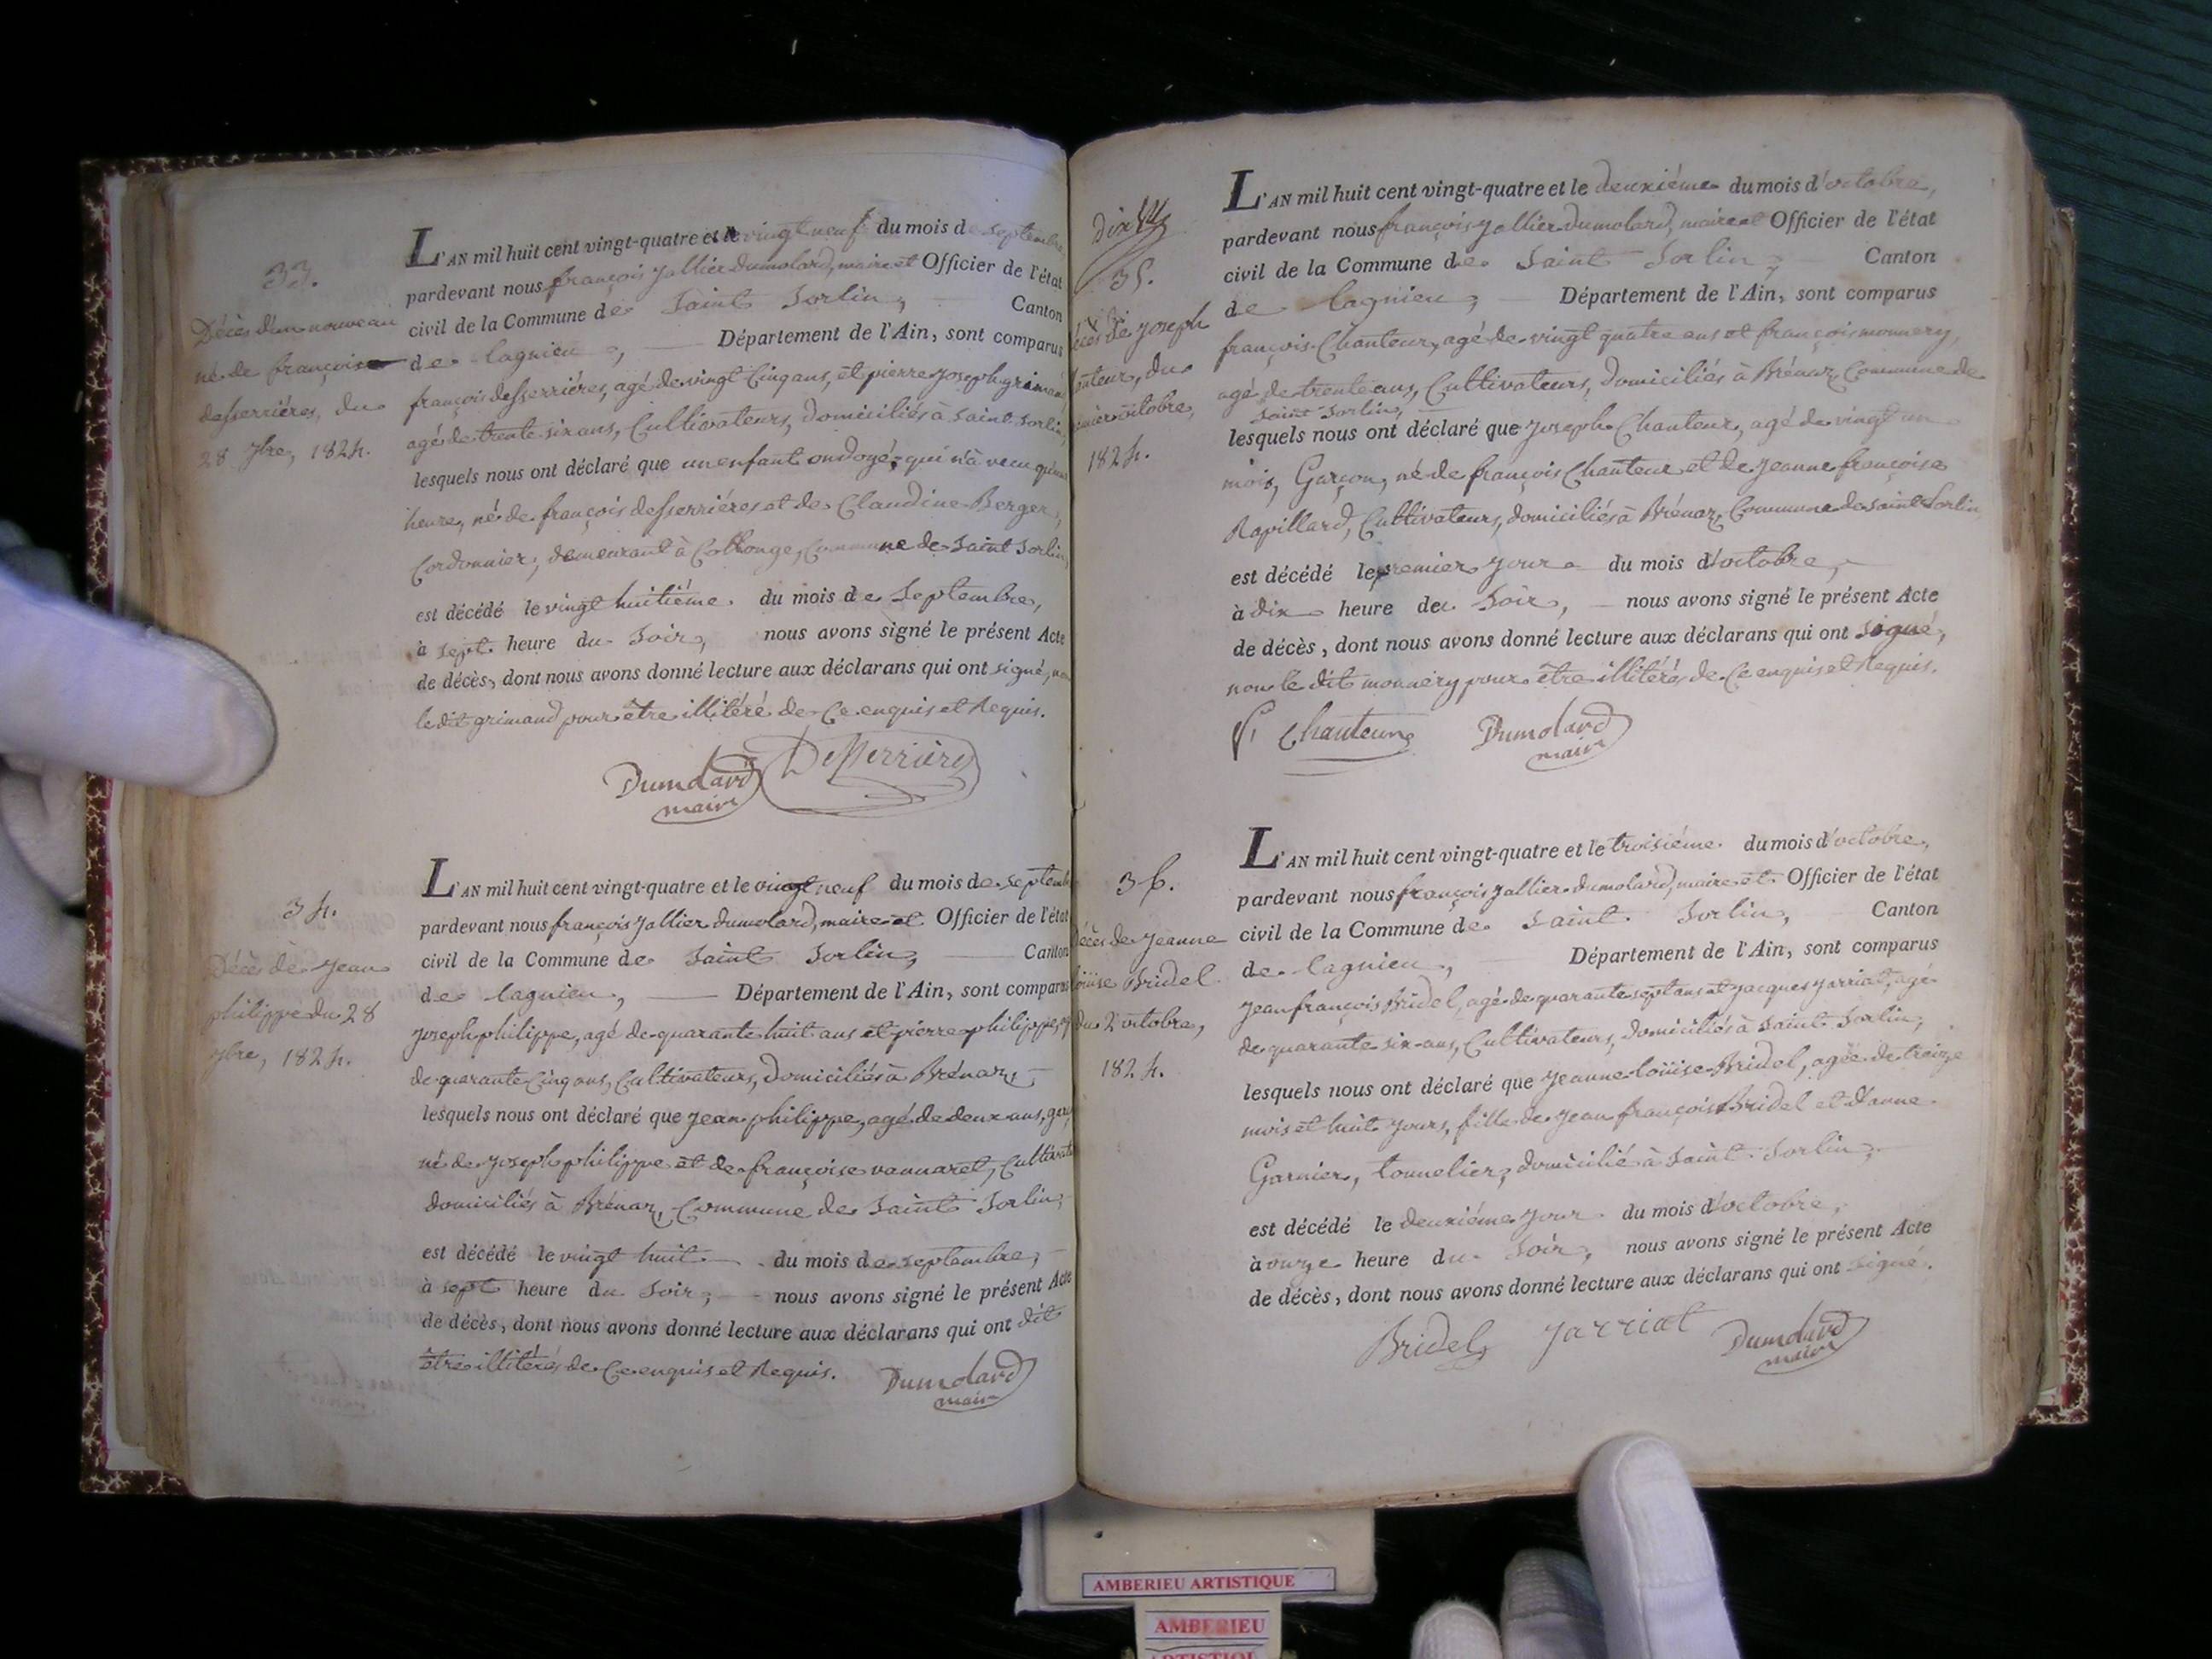 33.
Décès d'un nouveau
né de françoise
desserriéres, du
28 7bre, 1824.
L'AN mil huit cent vingt-quatre et le vingt neuf du mois de septembre
pardevant nous françois Jallier dumolard, maire et Officier de l'état
civil de la Commune de Saint Sorlin, Canton
de lagnieu, Département de l'Ain, sont comparus
françois desserriéres, agé de vingt Cinq ans, et pierre Joseph grimand
agé de trente six ans, Cultivateurs, Domiciliés à saint Sorlin,
lesquels nous ont déclaré que un enfant ondoyé, qui n'à vecu qu'une
heure, né de françois desserriéres et de Claudine Berger,
Cordonnier, demeurant à Collonge, Commune de Saint Sorlin,
est décédé le vingt huitiéme du mois de Septembre,
à sept heure du Soir, nous avons signé le présent Acte
de décès, dont nous avons donné lecture aux déclarans qui ont signé, non
le dit grimand pour être illitéré de Ce enquis et Requis.
Dumolard maire Desserrières
34.
Décès de Jean
philippe du 28
7bre, 1824.
L'AN mil huit cent vingt-quatre et le vingt neuf du mois de septemb
pardevant nous françois Jallier dumolard, maire et Officier de l'état
civil de la Commune de Saint Sorlin, Canton
de lagnieu, Département de l'Ain, sont comparus
Joseph philippe, agé de quarante huit ans et pierre philippe, ag
de quarante Cinq ans, Cultivateurs, Domiciliés à Brénaz,
lesquels nous ont déclaré que Jean philippe, agé de deux ans, gar
né de Joseph philippe et de françoise vannaret, Cultivate
domiciliés à Brénaz, Commune de Saint Sorlin,
est décédé le vingt huit du mois de septembre,
à sept heure du Soir, nous avons signé le présent Acte
de décès, dont nous avons donné lecture aux déclarans qui ont dit
être illitérés de Ce enquis et Requis. Dumolard maire
35.
Décès de Joseph
Chanteur, du
premier octobre,
1824.
L'AN mil huit cent vingt-quatre et le deuxiéme du mois d'octobre,
pardevant nous françois Jallier dumolard, maire et Officier de l'état
civil de la Commune de Saint Sorlin, Canton
de lagnieu, Département de l'Ain, sont comparus
françois Chanteur, agé de vingt quatre ans et françois monnery,
agé de trente ans, Cultivateurs, Domiciliés à Brénaz, Commune de
Saint Sorlin,
lesquels nous ont déclaré que Joseph Chanteur, agé de vingt un
mois, Garçon, né de françois Chanteur et de Jeanne françoise
Ravillard, Cultivateurs, domiciliés à Brénaz, Commune de Saint Sorlin
est décédé le premier Jour du mois d'octobre,
à dix heure du Soir, nous avons signé le présent Acte
de décès, dont nous avons donné lecture aux déclarans qui ont signé,
non le dit monnery pour être illitérés de Ce enquis et Requis.
f. Chanteur Dumolard maire
36.
Décès de Jeanne
Loüise Bridel
du 2 octobre,
1824.
L'AN mil huit cent vingt-quatre et le troisiéme du mois d'octobre,
pardevant nous françois Jallier dumolard, maire et Officier de l'état
civil de la Commune de Saint Sorlin, Canton
de lagnieu, Département de l'Ain, sont comparus
Jean françois Bridel, agé de quarante sept ans et Jacques Jarriat, agé
de quarante six ans, Cultivateurs, Domiciliés à Saint Sorlin,
lesquels nous ont déclaré que Jeanne loüise Bridel, agée de treize
mois et huit Jours, fille de Jean françois Bridel et d'anne
Garnier, tonnelier, domicilié à Saint Sorlin,
est décédé le deuxiéme Jour du mois d'octobre,
à onze heure du Soir, nous avons signé le présent Acte
de décès, dont nous avons donné lecture aux déclarans qui ont signé.
Bridel Jarriat Dumolard maire
AMBERIEU ARTISTIQUE
AMBERIEU
ARTISTIQUE